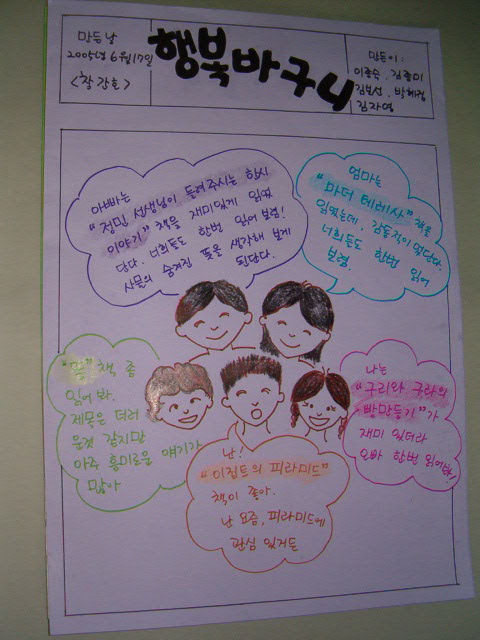 만든날
2005년 6월17일
<창간호>
행복바구니
만든이:
이종수, 김종미
김보선, 박혜정
김자영
아빠는
"정민 선생님이 들려주시는 한시
이야기" 책을 재미있게 읽었
단다. 너희들도 한번 읽어 보렴!
사물의 숨겨진 뜻을 생각해 보게
된단다.
엄마는
"마더 테레사" 책을
읽었는데, 감동적이 였단다.
너희들도 한번 읽어
보렴.
"똥" 책 좀
읽어 봐.
제목은 더러
운것 같지만
아주 흥미로운 얘기가
많아
난!
"이집트의 피라미드"
책이 좋아.
난 요즘, 피라미드에
관심 있거든
나는
"구리와 구라의
빵만들기"가
재미 있더라
오빠 한번 읽어봐!